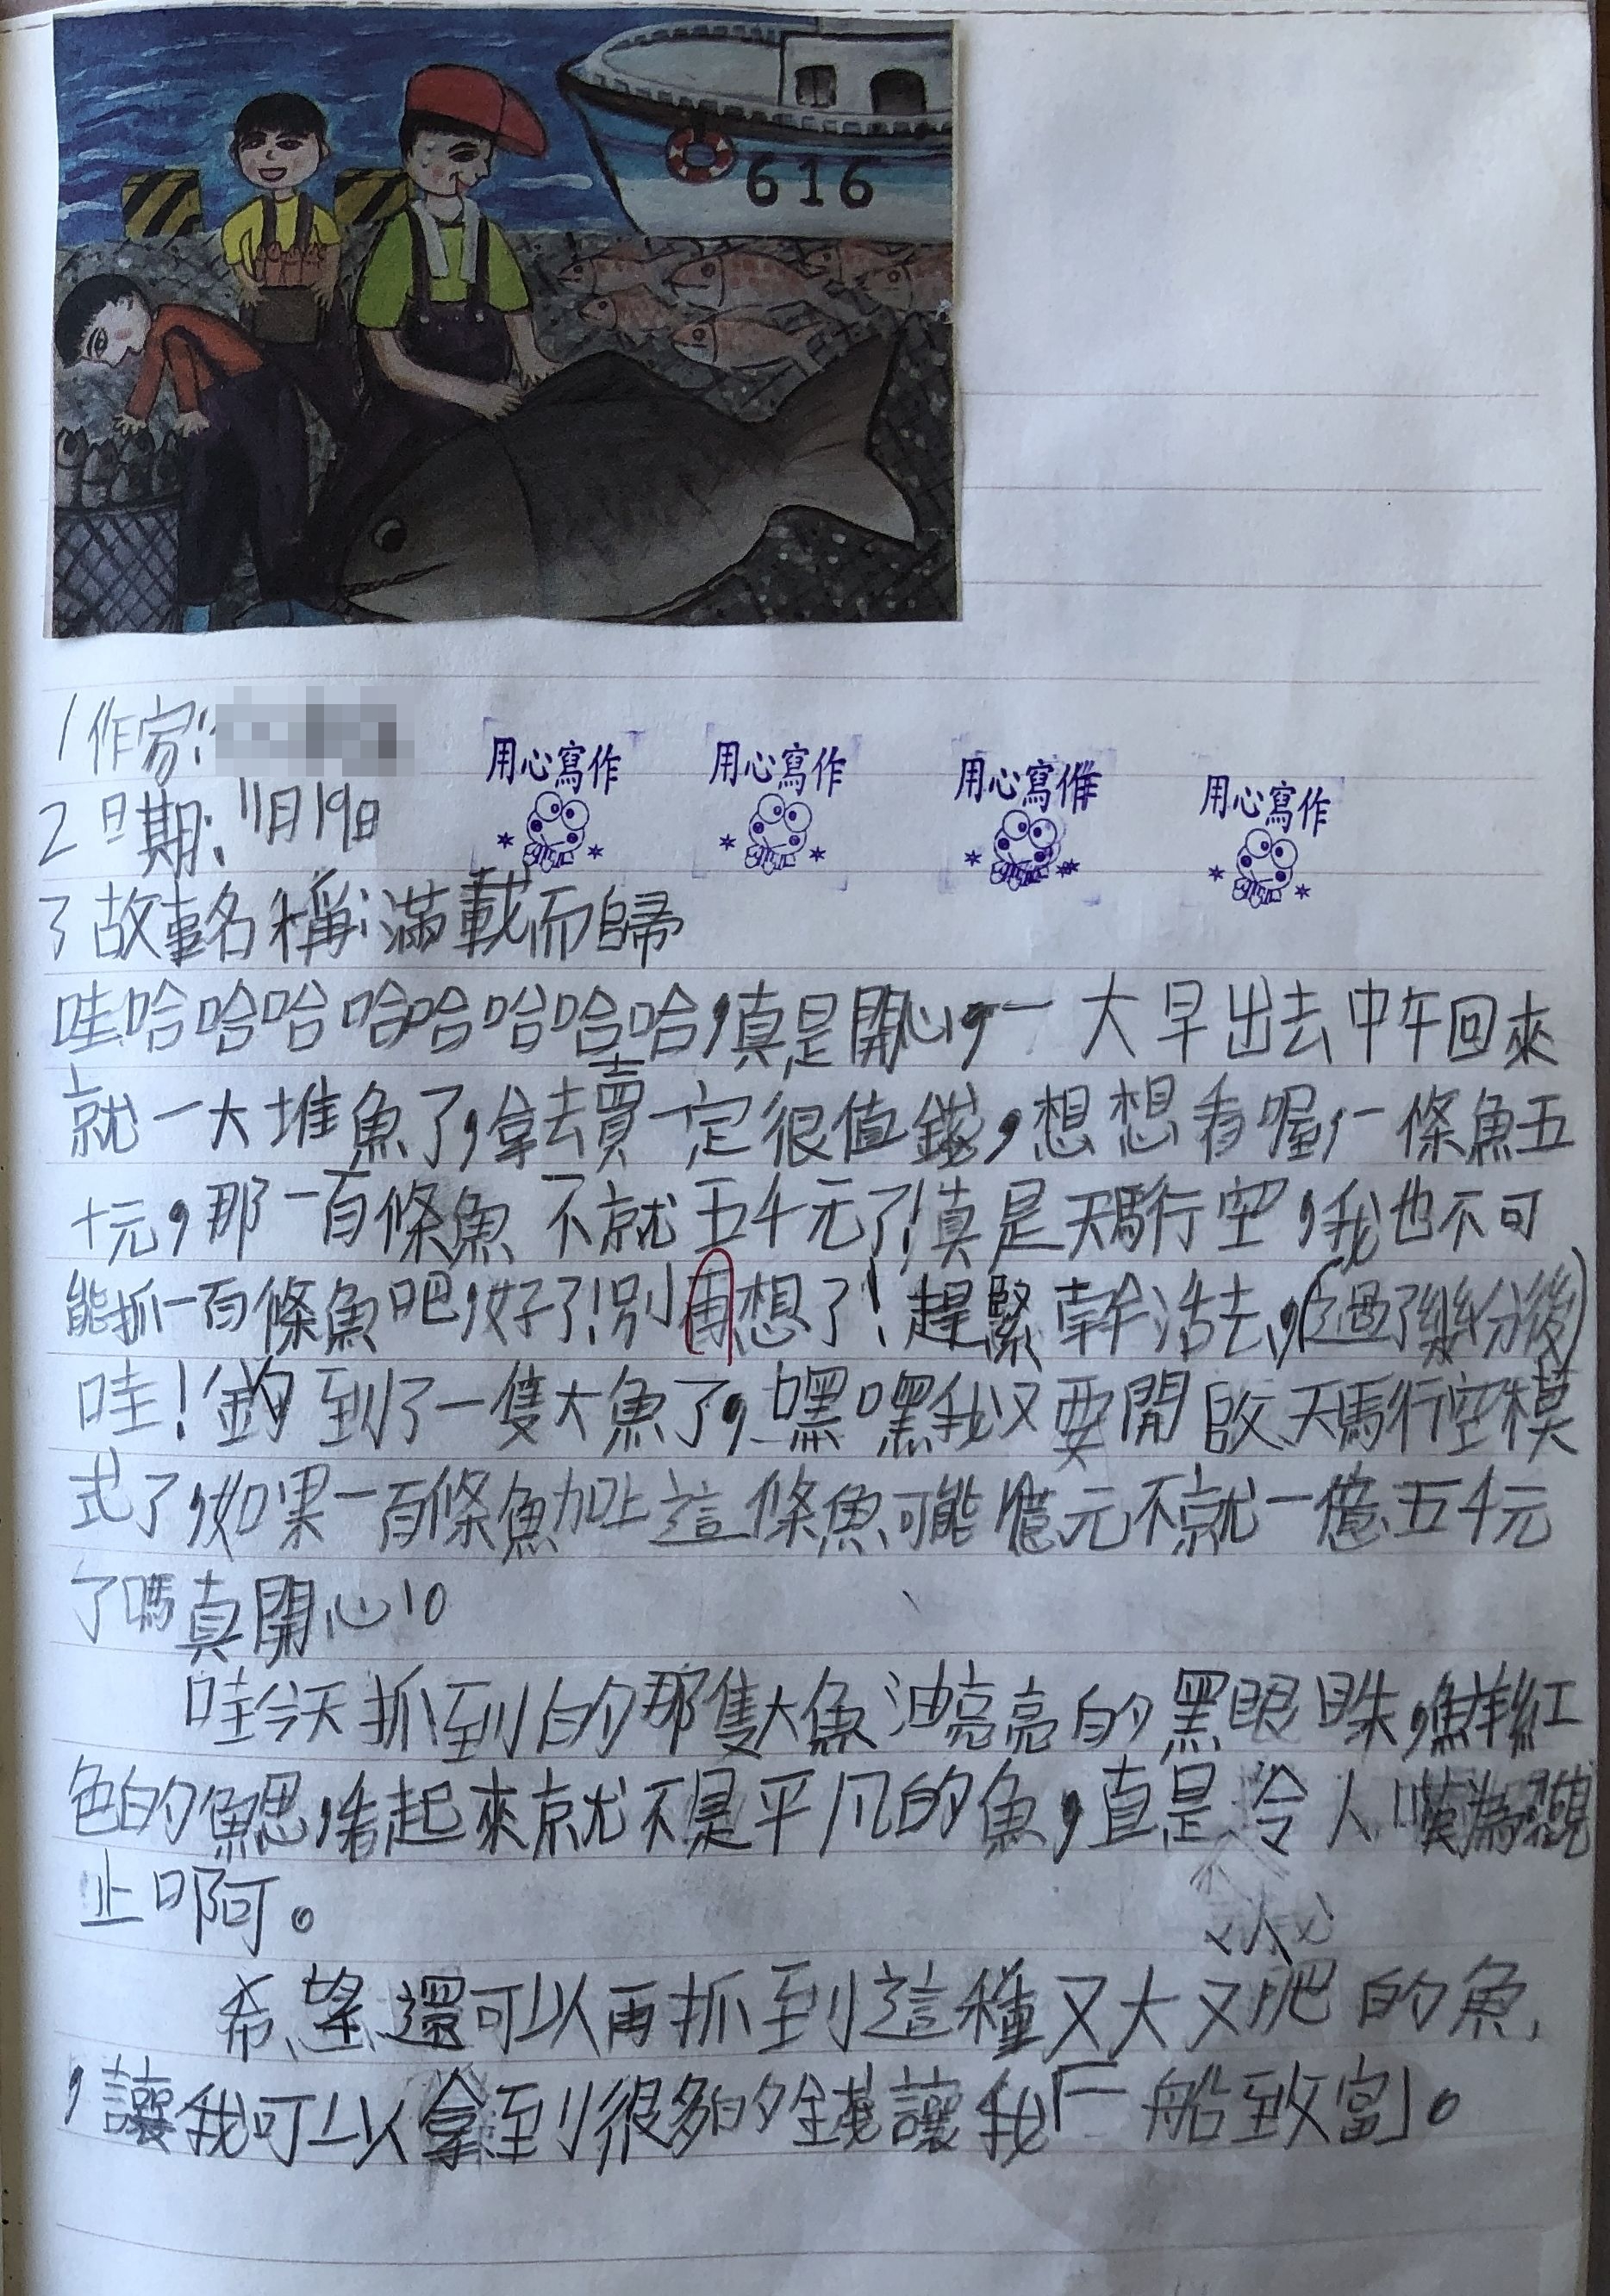 616
1作家:
用心寫作 用心寫作 用心寫作 用心寫作
2日期:11月19日
3故事名稱:滿載而歸
哇哈哈哈哈哈哈哈哈,真是開心,一大早出去中午回來
就一大堆魚了,拿去賣一定很值錢,想想看喔,一條魚五
十元,那一百條魚不就五千元了!真是天馬行空,我也不可
能抓一百條魚吧,好了!別再想了!趕緊幹活去,(過了幾分後)
哇!釣到了一隻大魚了,嘿嘿我又要開啟天馬行空模
式了,如果一百條魚加上這條魚可能億元不就一億五千元
了嗎真開心!。
哇今天抓到的那隻大魚油亮亮的黑眼珠,鮮紅
色的魚思,看起來就不是平凡的魚,真是令人嘆為觀
止啊。
希望還可以再抓到這種又大又肥的魚
,讓我可以拿到很多的錢讓我「一船致富」。